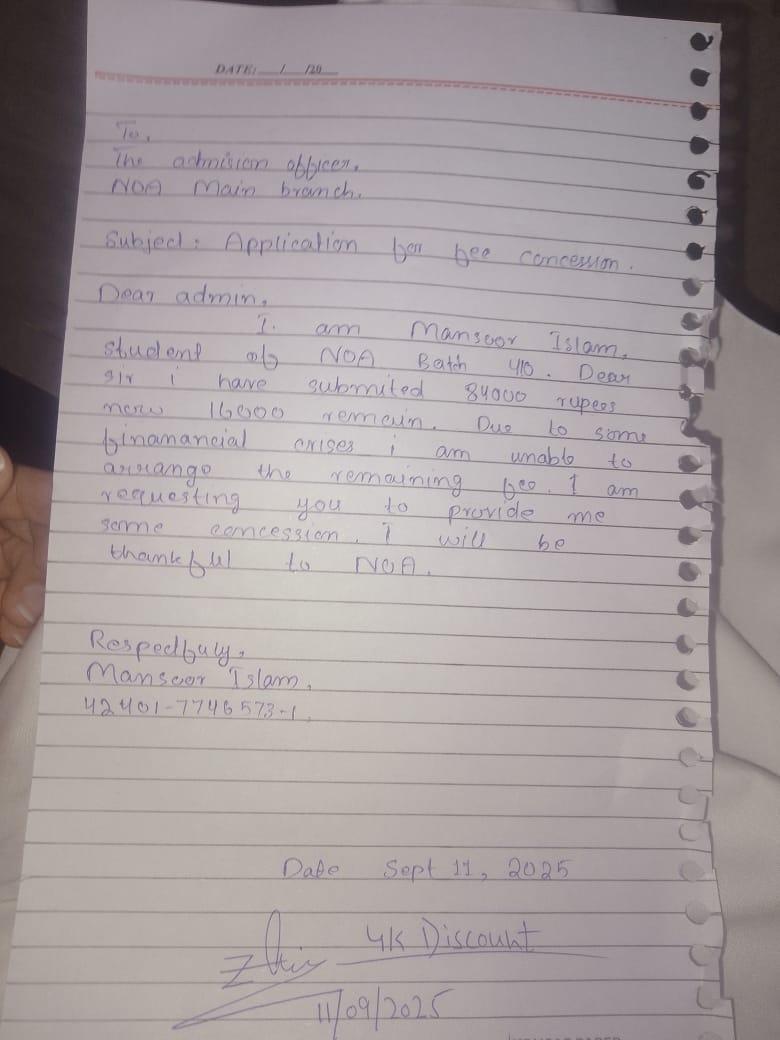 DATE: __/__/20__
To,
The admision officer,
NOA Main branch.
Subject: Application for fee concession.
Dear admin,
I am Mansoor Islam,
student of NOA Batch 410. Dear
sir i have submited 84000 rupees
now 16000 remain. Due to some
finamancial crises i am unable to
arrango the remaining fee. I am
requesting you to provide me
some concession. I will be
thankful to NOA.
Respedfuly,
Mansoor Islam,
42401-7746573-1
Date Sept 11, 2025
4K Discount
11/09/2025